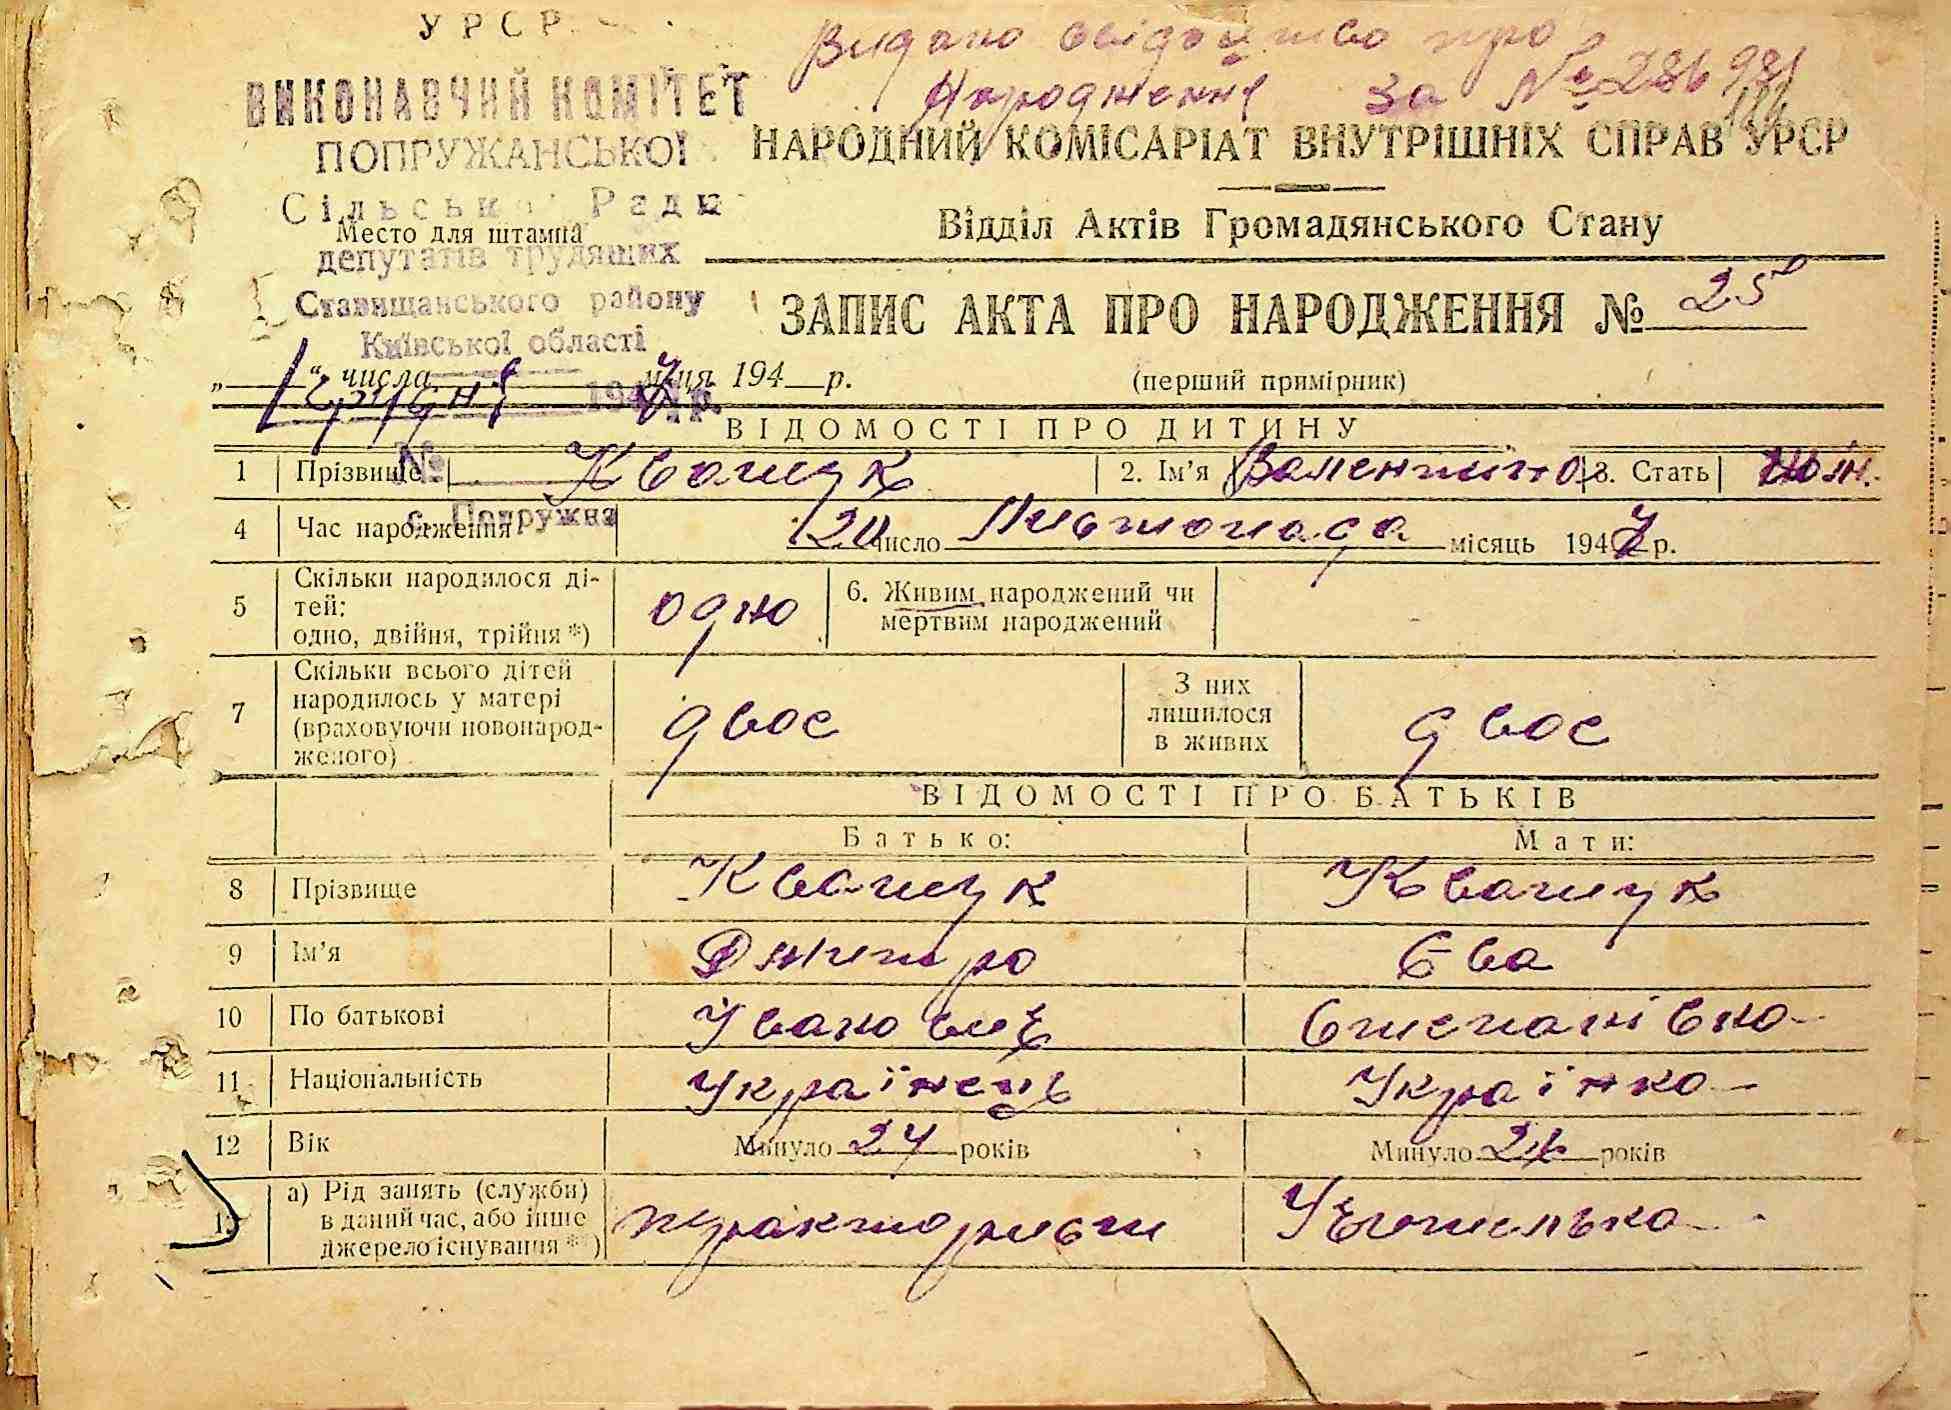 УРСР
Видано свідоцтво про
ВИКОНАВЧИЙ КОМІТЕТ
Народження за №
ПОПРУЖАНСЬКОЇ
НАРОДНИЙ КОМІСАРІАТ ВНУТРІШНІХ СПРАВ УРСР
Сільської Ради
Место для штампа
Відділ Актів Громадянського Стану
депутатів трудящих
Ставищанського району
ЗАПИС АКТА ПРО НАРОДЖЕННЯ № 25
Київської області
„ 1 “ числа м-ця 194 р.
(перший примірник)
Грудня 1947 р.
ВІДОМОСТІ ПРО ДИТИНУ
№
1 Прізвище Квашук 2. Ім’я Валентина 3. Стать жін.
с. Попружна
4 Час народження 20 число Листопада місяць 1947 р.
5 Скільки народилося ді-
тей:
одно, двійня, трійня *) одно
6. Живим народжений чи
мертвим народжений
7 Скільки всього дітей
народилось у матері
(враховуючи новонарод-
женого) двоє
З них
лишилося
в живих двоє
ВІДОМОСТІ ПРО БАТЬКІВ
Батько: Мати:
8 Прізвище Квашук Квашук
9 Ім’я Дмитро Єва
10 По батькові Івано вич Степані вна
11 Національність Українець Українка
12 Вік Минуло 24 років Минуло років
13 а) Рід занять (служби)
в даний час, або інше
джерело існування **) тракторист Учителька